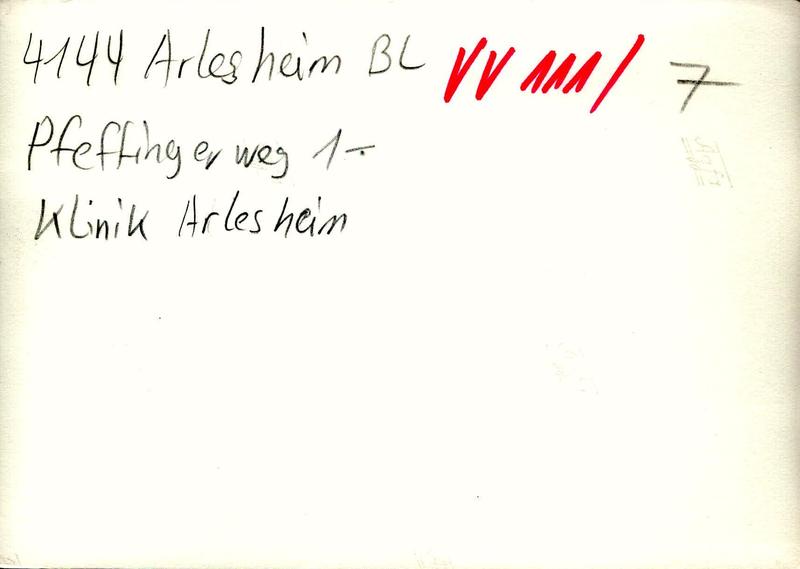 4144 Arlesheim BL VV 111/ 7
Pfeffingerweg 1-
Klinik Arlesheim